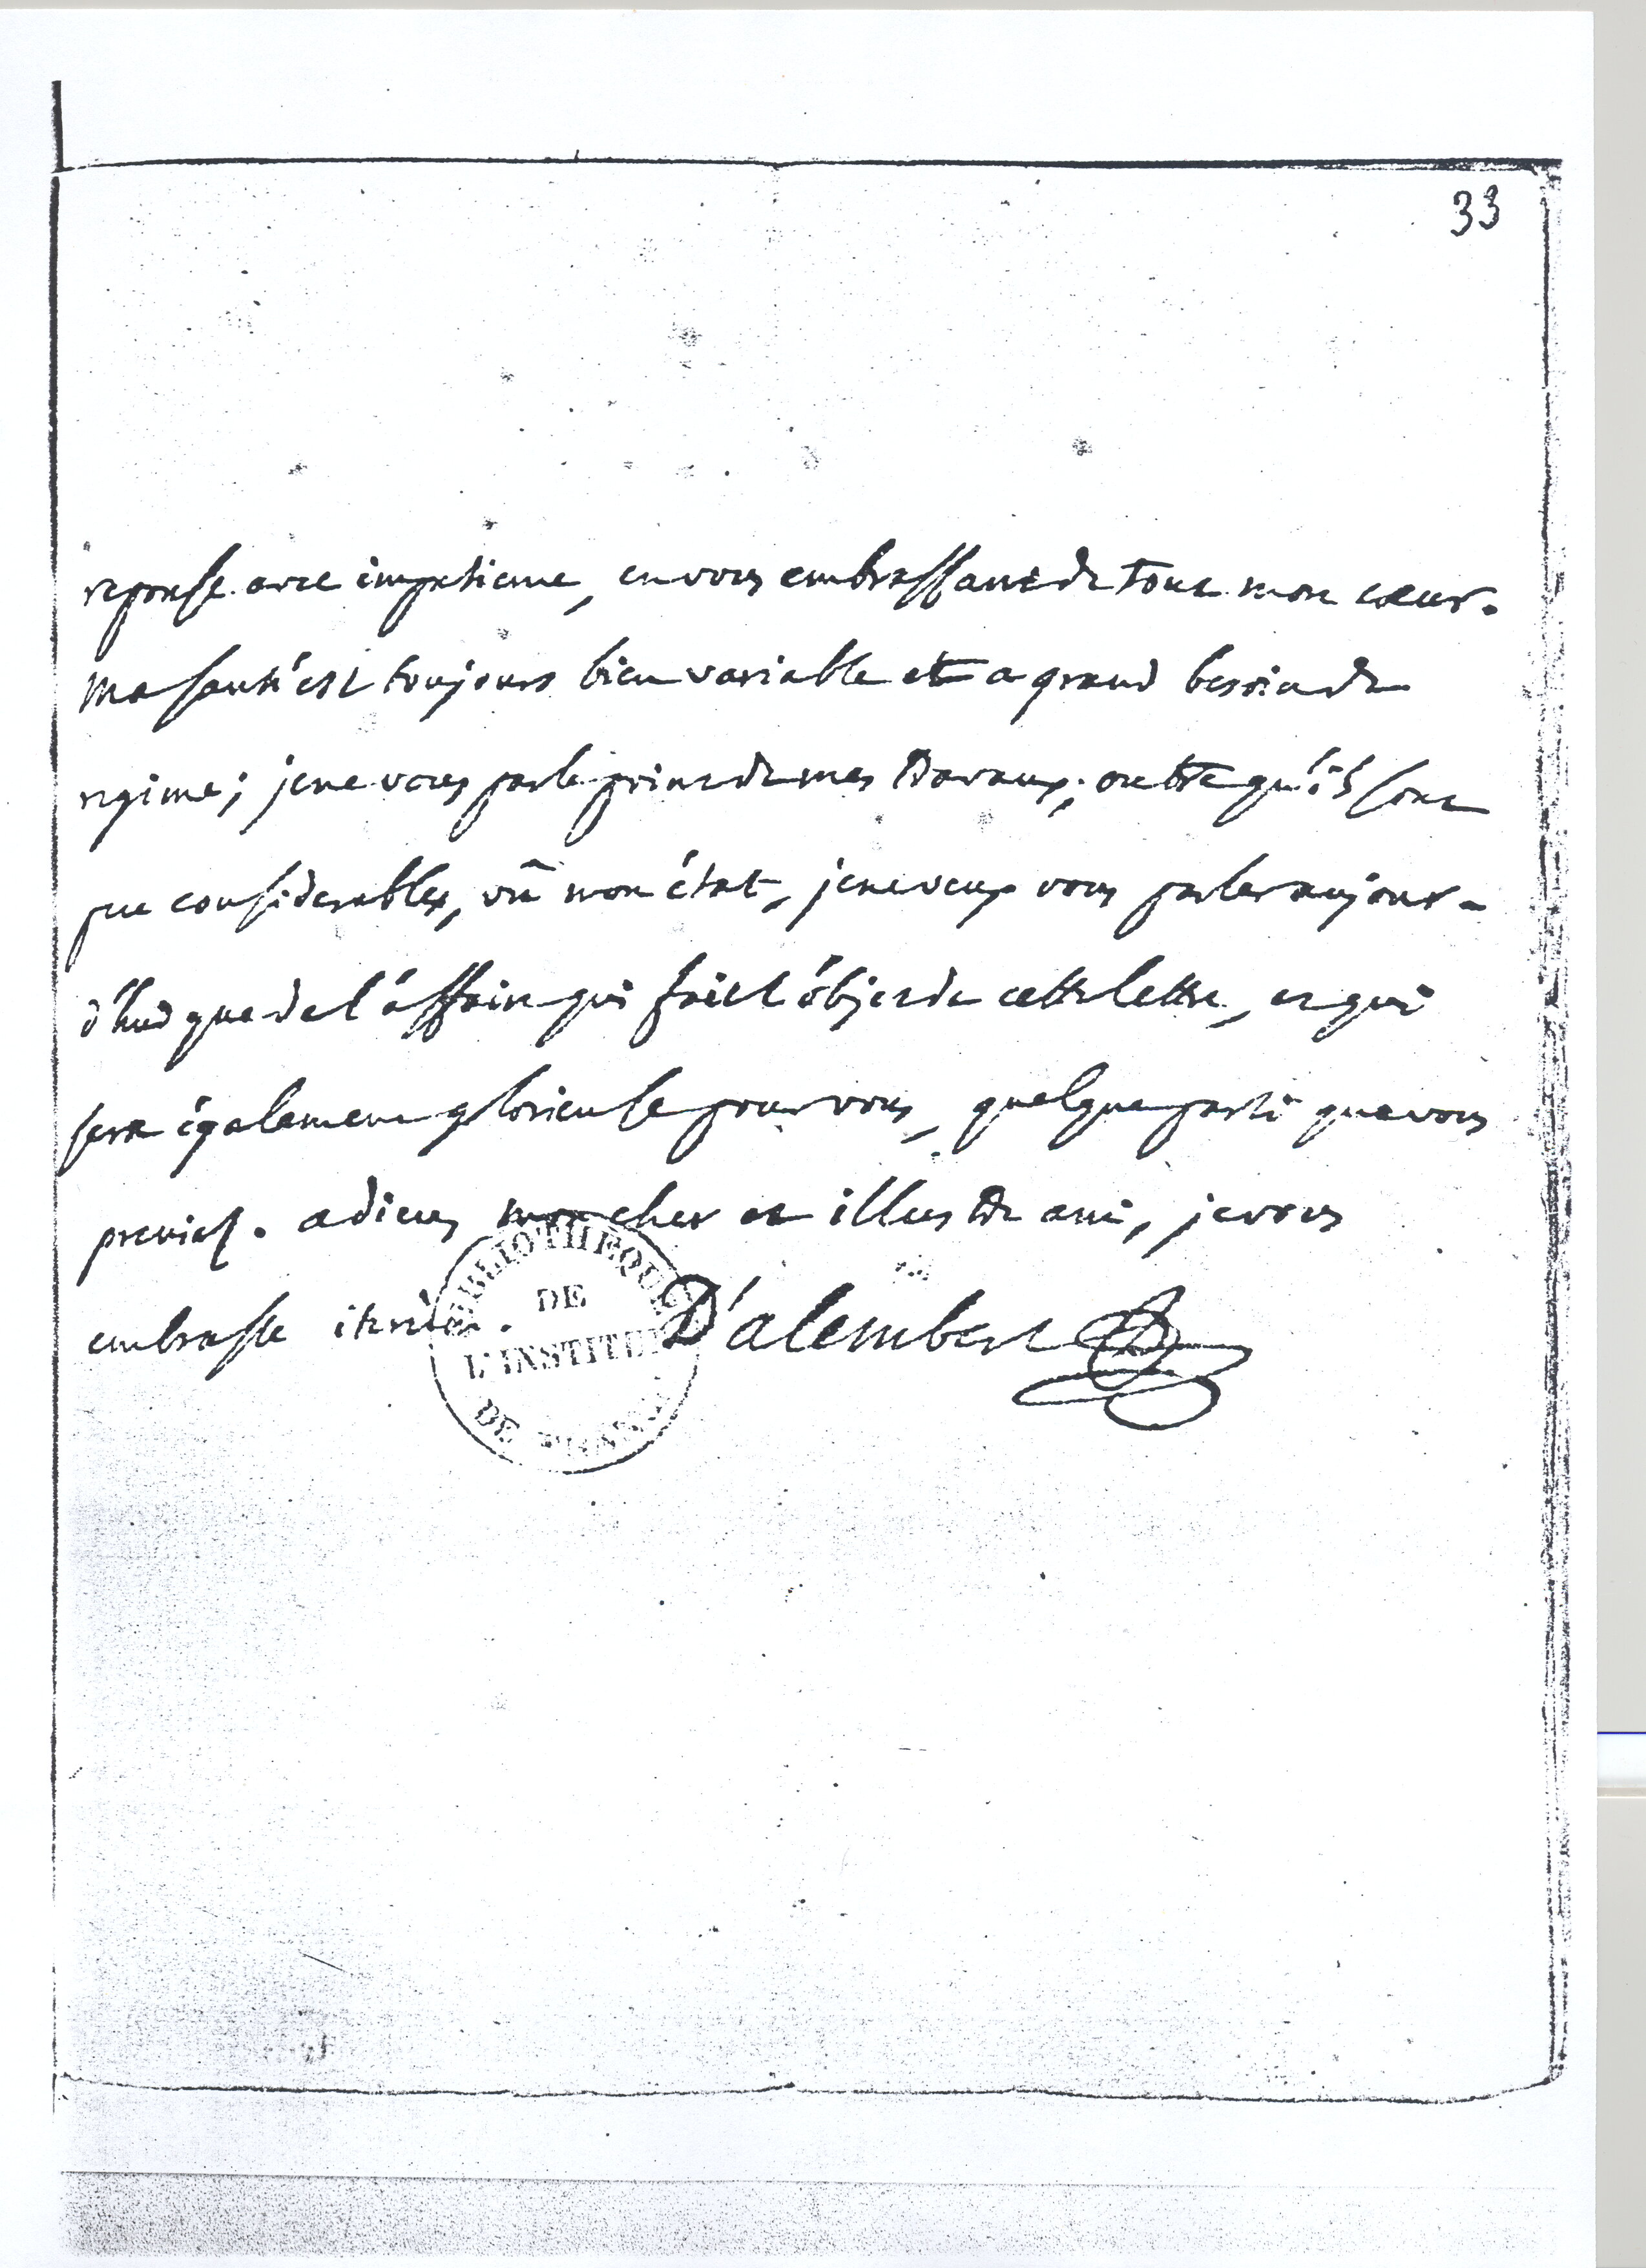 33
reponse avec impatience, en vous embrassant de tout mon cœur.
Ma santé est toujours bien variable et a grand besoin de
regime; je ne vous parle point de mes travaux; outre qu'ils sont
peu considerables, vû mon état, je ne veux vous parler aujour-
d'hui que de l'affaire qui fait l'objet de cette lettre, et qui
sera également glorieuse pour vous, quelque parti que vous
preniez. adieu, mon cher et illustre ami, je vous
embrasse iterum. D'alembert
BIBLIOTHEQUE
DE
L'INSTITUT
DE FRANCE